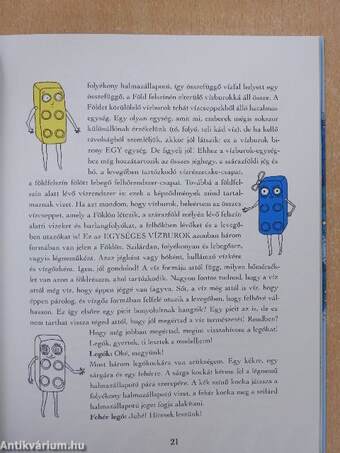 folyékony halmazállapotú, így összefüggő vízfal helyett egy
összefüggő, a Föld felszínén elterülő vízburokká áll össze. A
Földet körülölelő vízburok tehát vízcseppekből álló hatalmas
egység. Egy olyan egység, amit mi, emberek mégis sokszor
különállónak érzékelünk (tó, folyó, teli kád víz), de ha kellő
távolságból szemléljük, akkor jól látszik: ez a vízburok bizony
EGY egység. De ügyelj jól! Ehhez a vízburok-egység-
hez még hozzátartozik az összes jéghegy, a szárazföldi jég és hó,
a levegőben tartózkodó vízrészecske-csapat,
a földfelszín fölött lebegő felhőrendszer-csapat. Továbbá a földfel-
szín alatt lévő vízrendszer is: ezek a képződmények mind tartal-
maznak vizet. Ha azt mondom, hogy vízburok, beleértem az összes
vízcseppet, amely a Földön létezik, a szárazföld mélyén lévő felszín
alatti vizeket és barlangfolyókat, a felhőkben lévőket és a levegő-
ben utazókat is! Ez az EGYSÉGES VÍZBUROK azonban három
formában van jelen a Földön. Szilárdan, folyékonyan és lebegősen,
vagyis légneműként. Azaz jégként vagy hóként, hullámzó vízként
és a levegőben utazóként. Igen, jól gondolod! A víz formája attól függ, milyen hőmérséklet
van azon a földrészen, ahol tartózkodik. Nagyon fontos tudnod, hogy a víz
attól még víz, hogy éppen jéggé van fagyva. Sőt, a víz még attól is víz, hogy
éppen párolog, és vízgőz formában felfelé utazik a levegőben, hogy felhővé vál-
hasson. Ez így elsőre egy picit bonyolultnak hangzik? Egy picit az is, de ez
nem tarthat vissza téged attól, hogy jól megértsd a víz természetét! Rendben?
Hogy még jobban megértsd, megint visszahívom a legókat.
Legók, gyertek, ti lesztek a modelljeim!
Legók: Oké, megyünk!
Most három legókockára van szükségem. Egy kékre, egy
sárgára és egy fehérre. A sárga kockát kérném fel a légnemű
halmazállapotú pára szerepére. A kék színű kocka játssza a
folyékony halmazállapotú vizet, a fehér kocka meg a szilárd
halmazállapotú jeget fogja alakítani.
Fehér legó: Juhé! Híresek leszünk!
21
antikvárium.hu